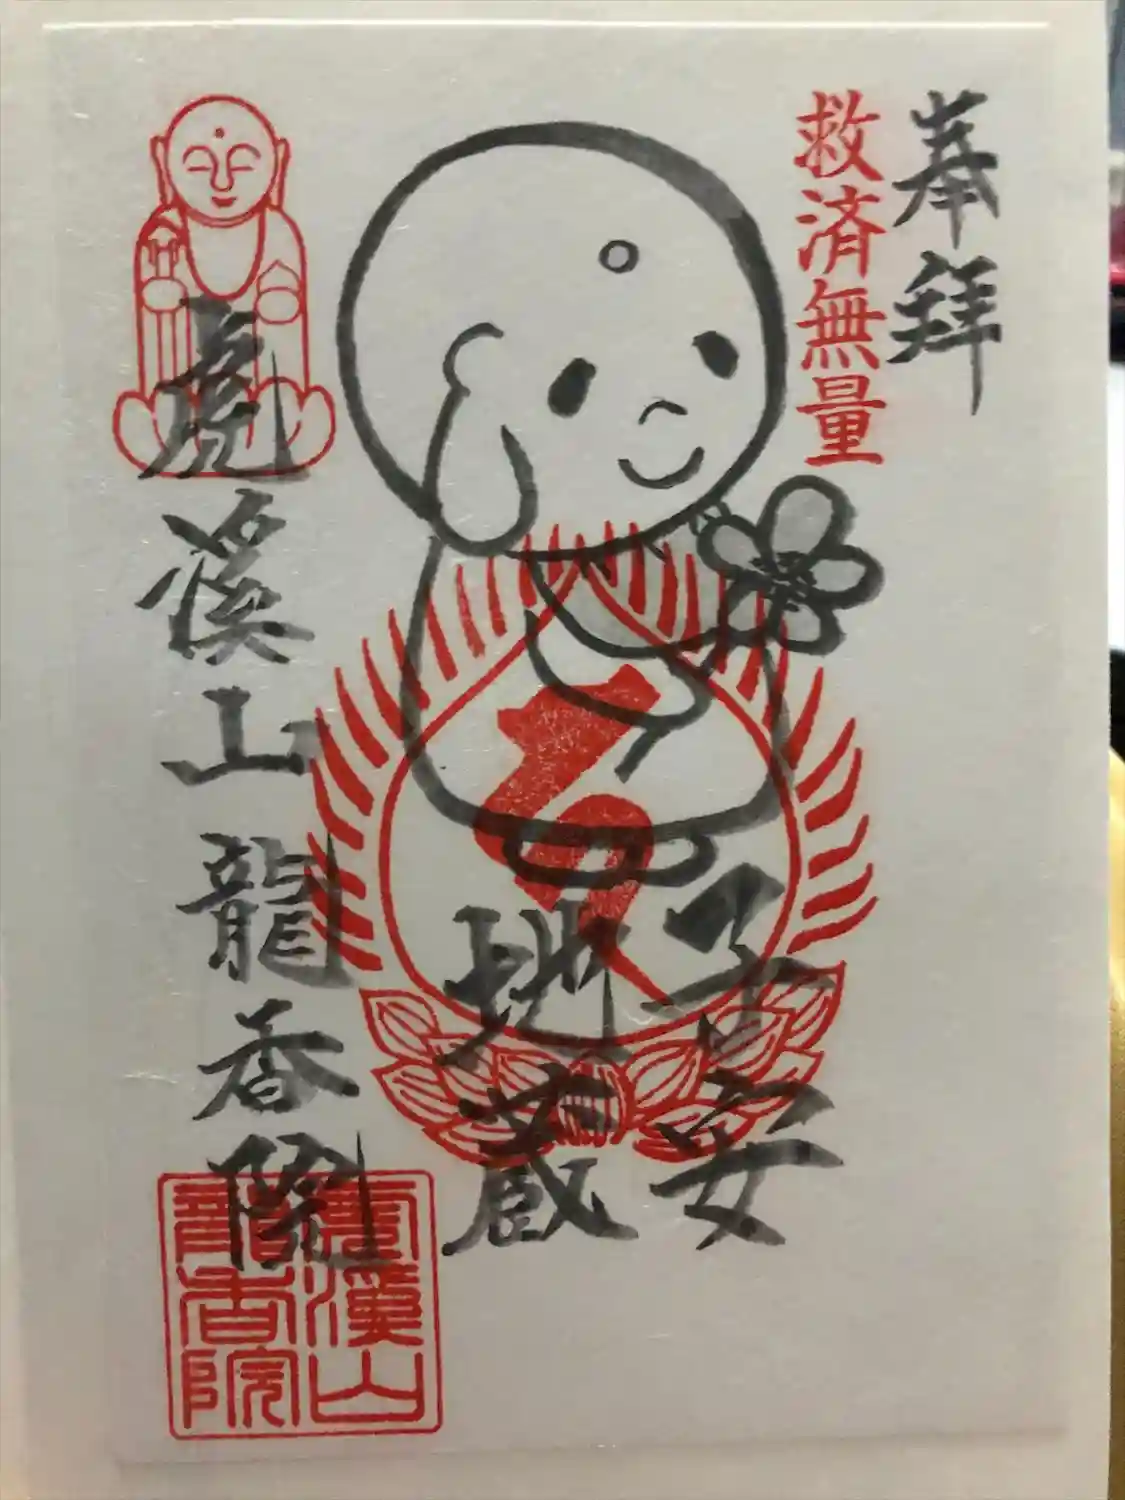 奉拝
救済無量
子安
地蔵
虎溪山龍香院
虎溪山
龍香院